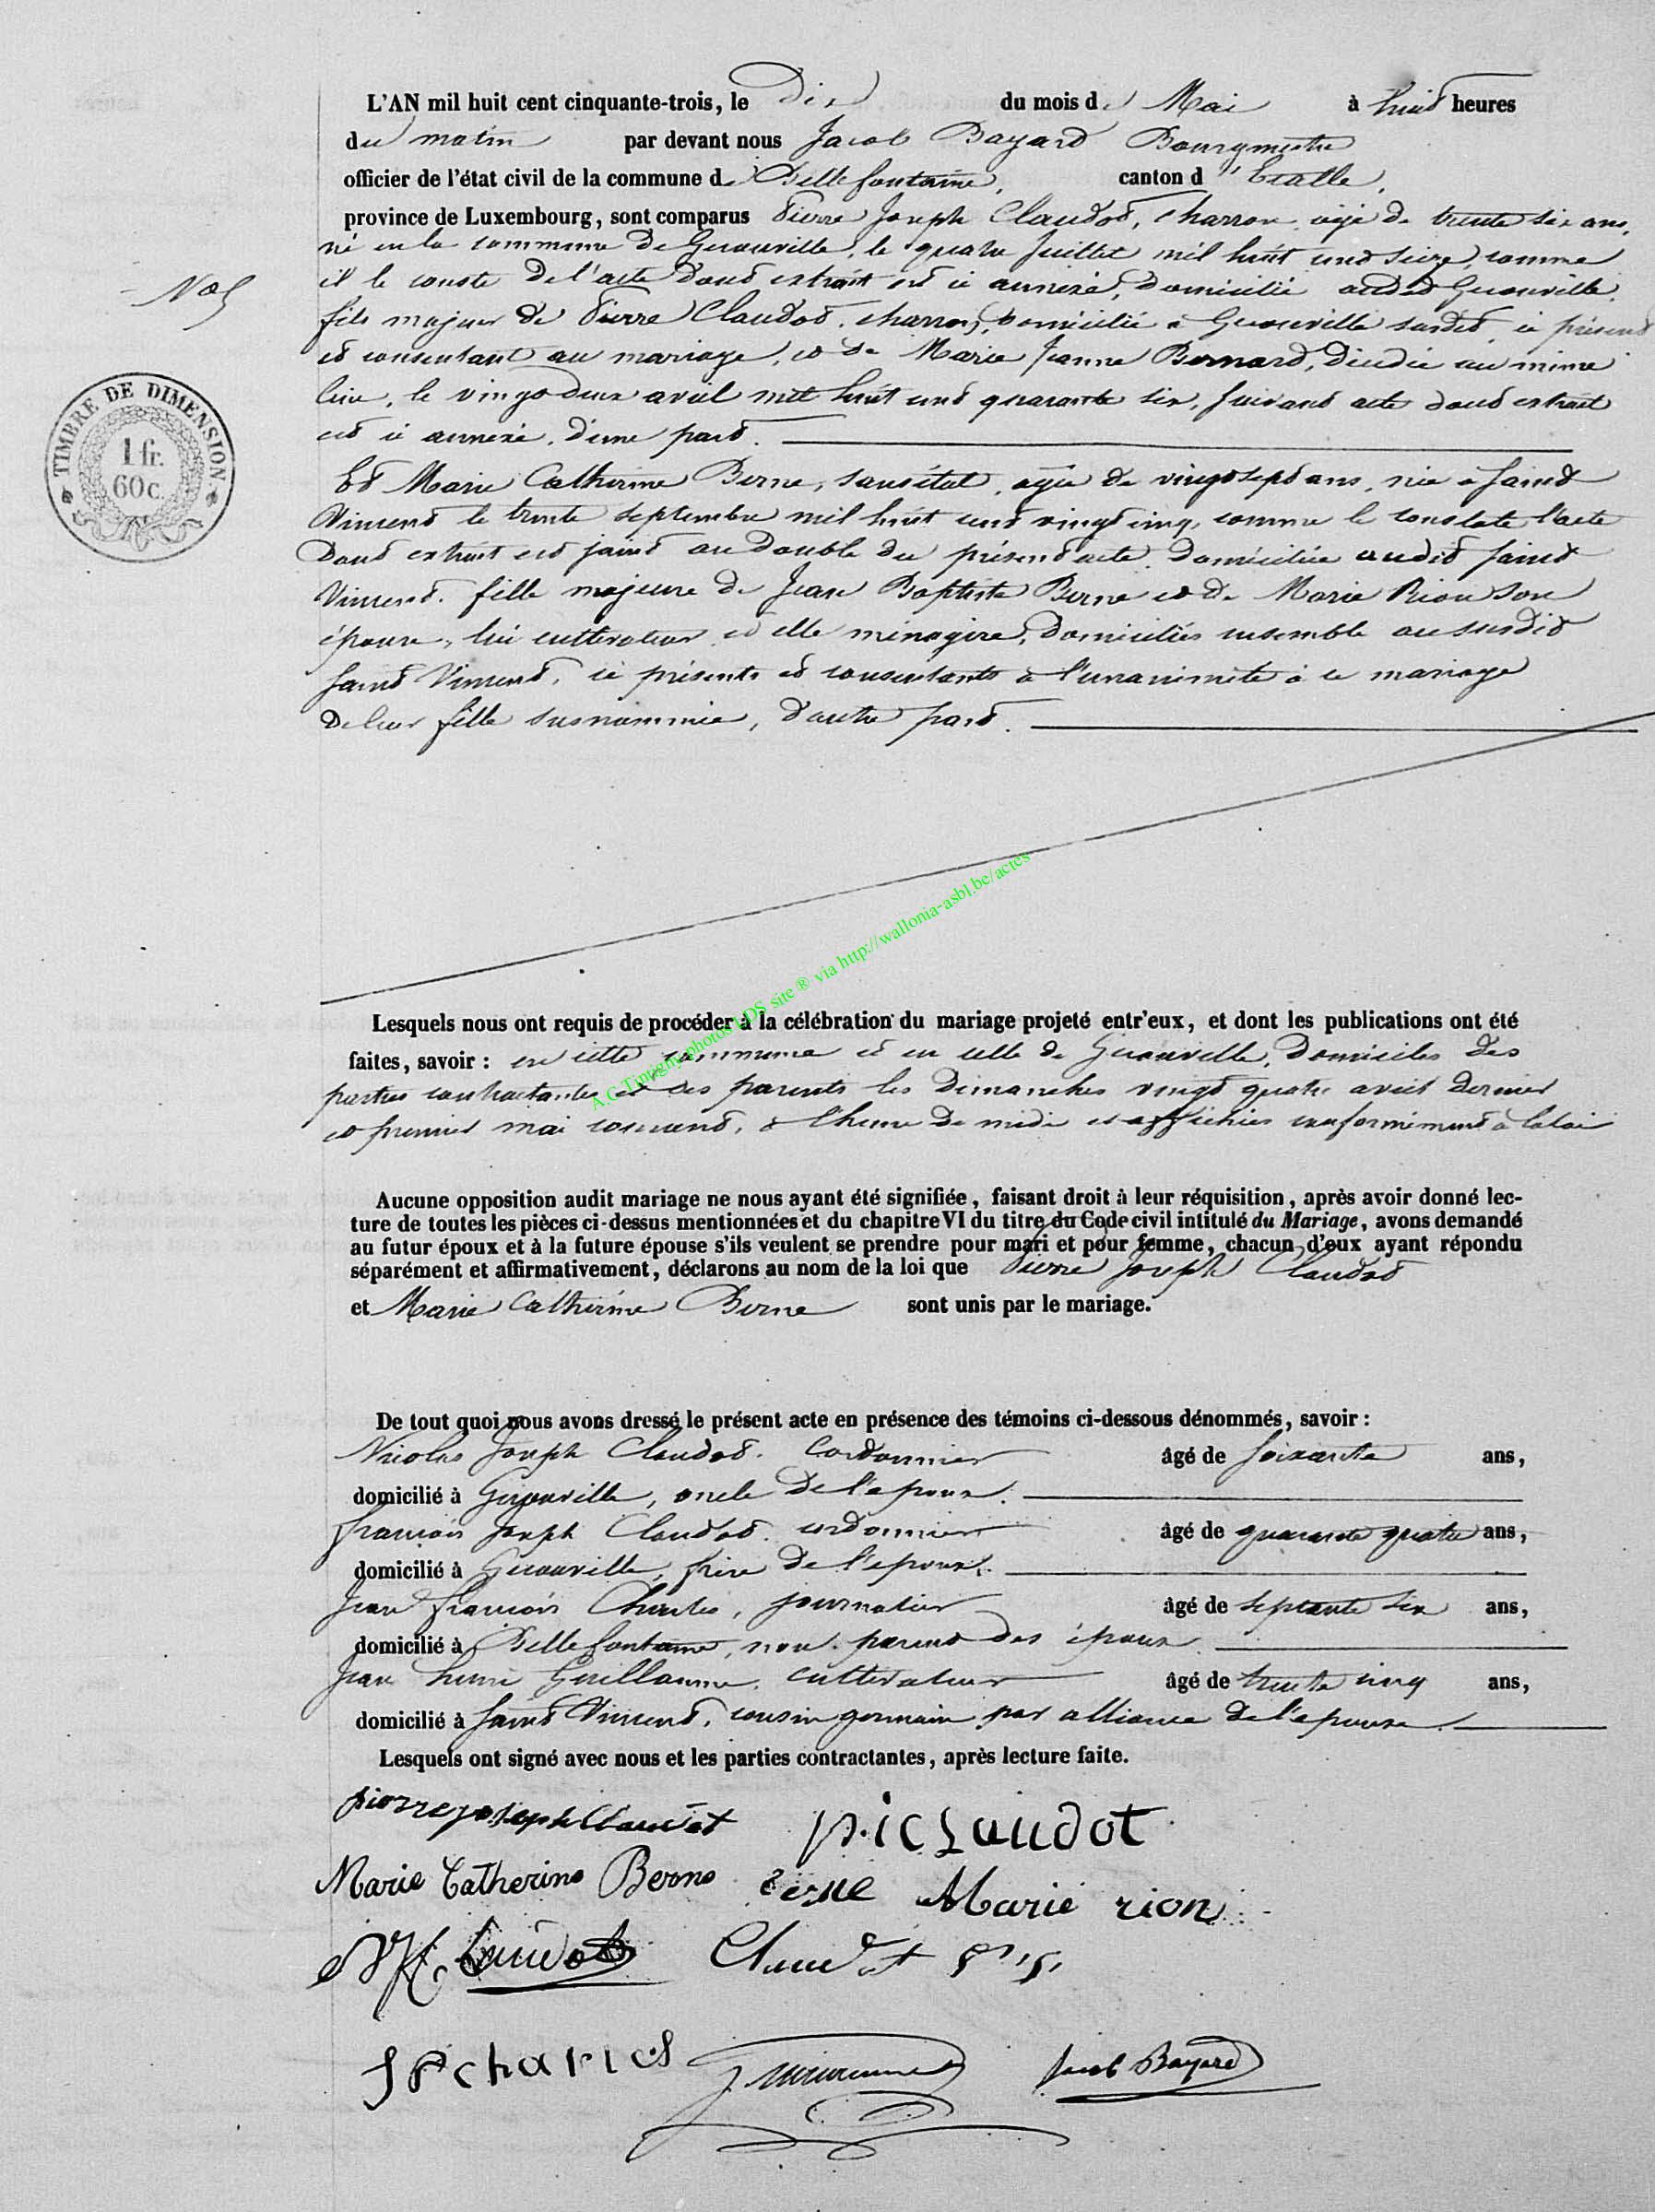 L'AN mil huit cent cinquante-trois, le Dix du mois de Mai à huit heures
du matin par devant nous Jacob Bayard Bourgmestre
officier de l'état civil de la commune de Bellefontaine, canton d'Etalle,
province de Luxembourg, sont comparus Pierre Joseph Claudot, charron, âgé de trente six ans,
né en la commune de Gerouville, le quatre Juillet mil huit cent seize, comme
il le conste de l'acte dont extrait est ci annexé, domicilié audit Gerouville,
fils majeur de Pierre Claudot, charron, domicilié à Gerouville susdit, ci présent
et consentant au mariage, et de Marie Jeanne Bernard, décédée au même
lieu, le vingt deux avril mil huit cent quarante six, suivant acte dont extrait
est ci annexé, d'une part.
N° 5
TIMBRE DE DIMENSION
1 fr.
60 c.
Et Marie Catherine Berne, sans état, âgée de vingt sept ans, née à Saint
Vincent le trente septembre mil huit cent vingt cinq, comme le constate l'acte
dont extrait est joint au double du présent acte, domiciliée audit Saint
Vincent, fille majeure de Jean Baptiste Berne et de Marie Rion son
épouse, lui cultivateur et elle ménagère, domiciliés ensemble au susdit
Saint Vincent, ci présents et consentants à l'unanimité à ce mariage
de leur fille susnommée, d'autre part.
A.C Tintigny photos LDS site ® via http://wallonia-asbl.be/actes
Lesquels nous ont requis de procéder à la célébration du mariage projeté entr'eux, et dont les publications ont été
faites, savoir : en cette commune et en celle de Gerouville, domiciles des
parties contractantes et des parents les Dimanches vingt quatre avril dernier
et premier mai courant, à l'heure de midi et affichées conformément à la loi
Aucune opposition audit mariage ne nous ayant été signifiée, faisant droit à leur réquisition, après avoir donné lec-
ture de toutes les pièces ci-dessus mentionnées et du chapitre VI du titre du Code civil intitulé du Mariage, avons demandé
au futur époux et à la future épouse s'ils veulent se prendre pour mari et pour femme, chacun d'eux ayant répondu
séparément et affirmativement, déclarons au nom de la loi que Pierre Joseph Claudot
et Marie Catherine Berne sont unis par le mariage.
De tout quoi nous avons dressé le présent acte en présence des témoins ci-dessous dénommés, savoir :
Nicolas Joseph Claudot, Cordonnier âgé de soixante ans,
domicilié à Gerouville, oncle de l'époux.
François Joseph Claudot, cordonnier âgé de quarante quatre ans,
domicilié à Gerouville, frère de l'époux.
Jean François Charles, journalier âgé de septante six ans,
domicilié à Bellefontaine, non parent des époux
Jean Henri Guillaume, cultivateur âgé de trente cinq ans,
domicilié à Saint Vincent, cousin germain par alliance de l'épouse.
Lesquels ont signé avec nous et les parties contractantes, après lecture faite.
pierre joseph Claudot p.i claudot
Marie Catherine Berne Berne Marie rion
Claudot
Jf charles Jacob Bayard